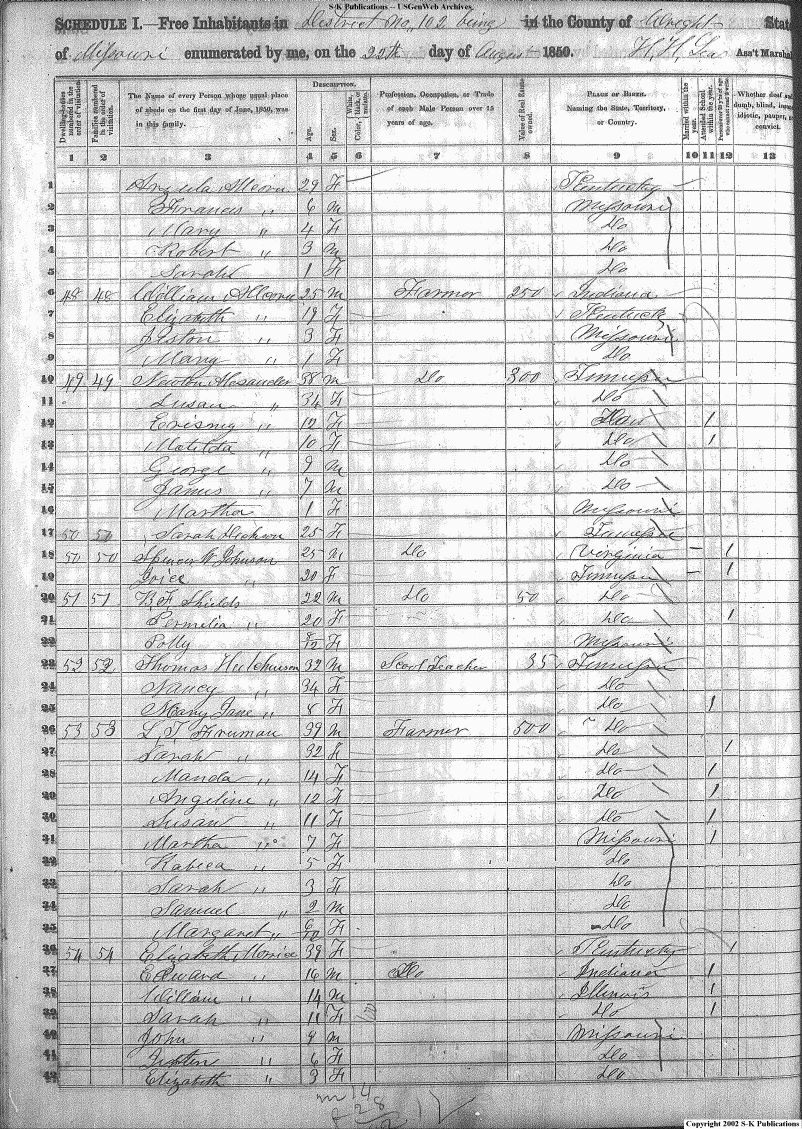 S-K Publications -- USGenWeb Archives.
SCHEDULE I.—Free Inhabitants in District No, 102 being in the County of Wright State
of Missouri enumerated by me, on the 20th day of August 1850. H, H, Ass't Marshal
Dwelling-houses numbered in the order of visitation.
Families numbered in the order of visitation.
The Name of every Person whose usual place of abode on the first day of June, 1850, was in this family.
DESCRIPTION.
Age.
Sex.
White, Color, black, or mulatto.
Profession, Occupation, or Trade of each Male Person over 15 years of age.
Value of Real Estate owned.
PLACE OF BIRTH. Naming the State, Territory, or Country.
Married within the year.
Attended School within the year.
Whether deaf and dumb, blind, insane, idiotic, pauper, or convict.
1 2 3 4 5 6 7 8 9 10 11 12 13
1 29 F Kentucky
2 Francis " 6 M Missouri
3 Mary " 4 F Do
4 Robert " 3 M Do
5 Sarah 1 F Do
6 48 48 William 25 M Farmer 250 Indiana
7 Elizabeth " 19 F Kentuck
8 " 3 F Missouri
9 Mary " 1 F Do
10 49 49 Newton Alexander 38 M Do 300
11 Susan " 34 F Do
12 " 12 F 1
13 Matilda " 10 F Do 1
14 George " 9 M Do
15 James " 7 M Do
16 Martha 1 F Missouri
17 50 50 Sarah 25 F
18 50 50 Spencer W Johnson 25 M Do Virginia – 1
19 " 20 F – 1
20 51 51 B F Shields 22 M Do 50 Do
21 Permelia " 20 F Do 1
22 Polly 8/12 F Missouri
23 52 52 Thomas Hutchinson 32 M Scool Teacher 35
24 Nancy " 34 F Do
25 Mary Jane " 8 F Do 1
26 53 53 39 M Farmer 500 Do
27 Sarah " 32 F Do 1
28 Manda " 14 F Do 1
29 Angeline " 12 F Do 1
30 Susan " 11 F Do 1
31 Martha " 7 F Missouri 1
32 " 5 F Do
33 Sarah " 3 F Do
34 Samuel " 2 M Do
35 Margaret " 6/12 F Do
36 54 54 Elizabeth 39 F Kentucky 1
37 Edward " 16 M Do Indiana 1
38 William " 14 M Illinois 1
39 Sarah " 11 F Do 1
40 John " 8 M Missouri
41 " 6 F Do
42 Elizabeth " 3 F Do
m 14
f 28
Copyright 2002 S-K Publications